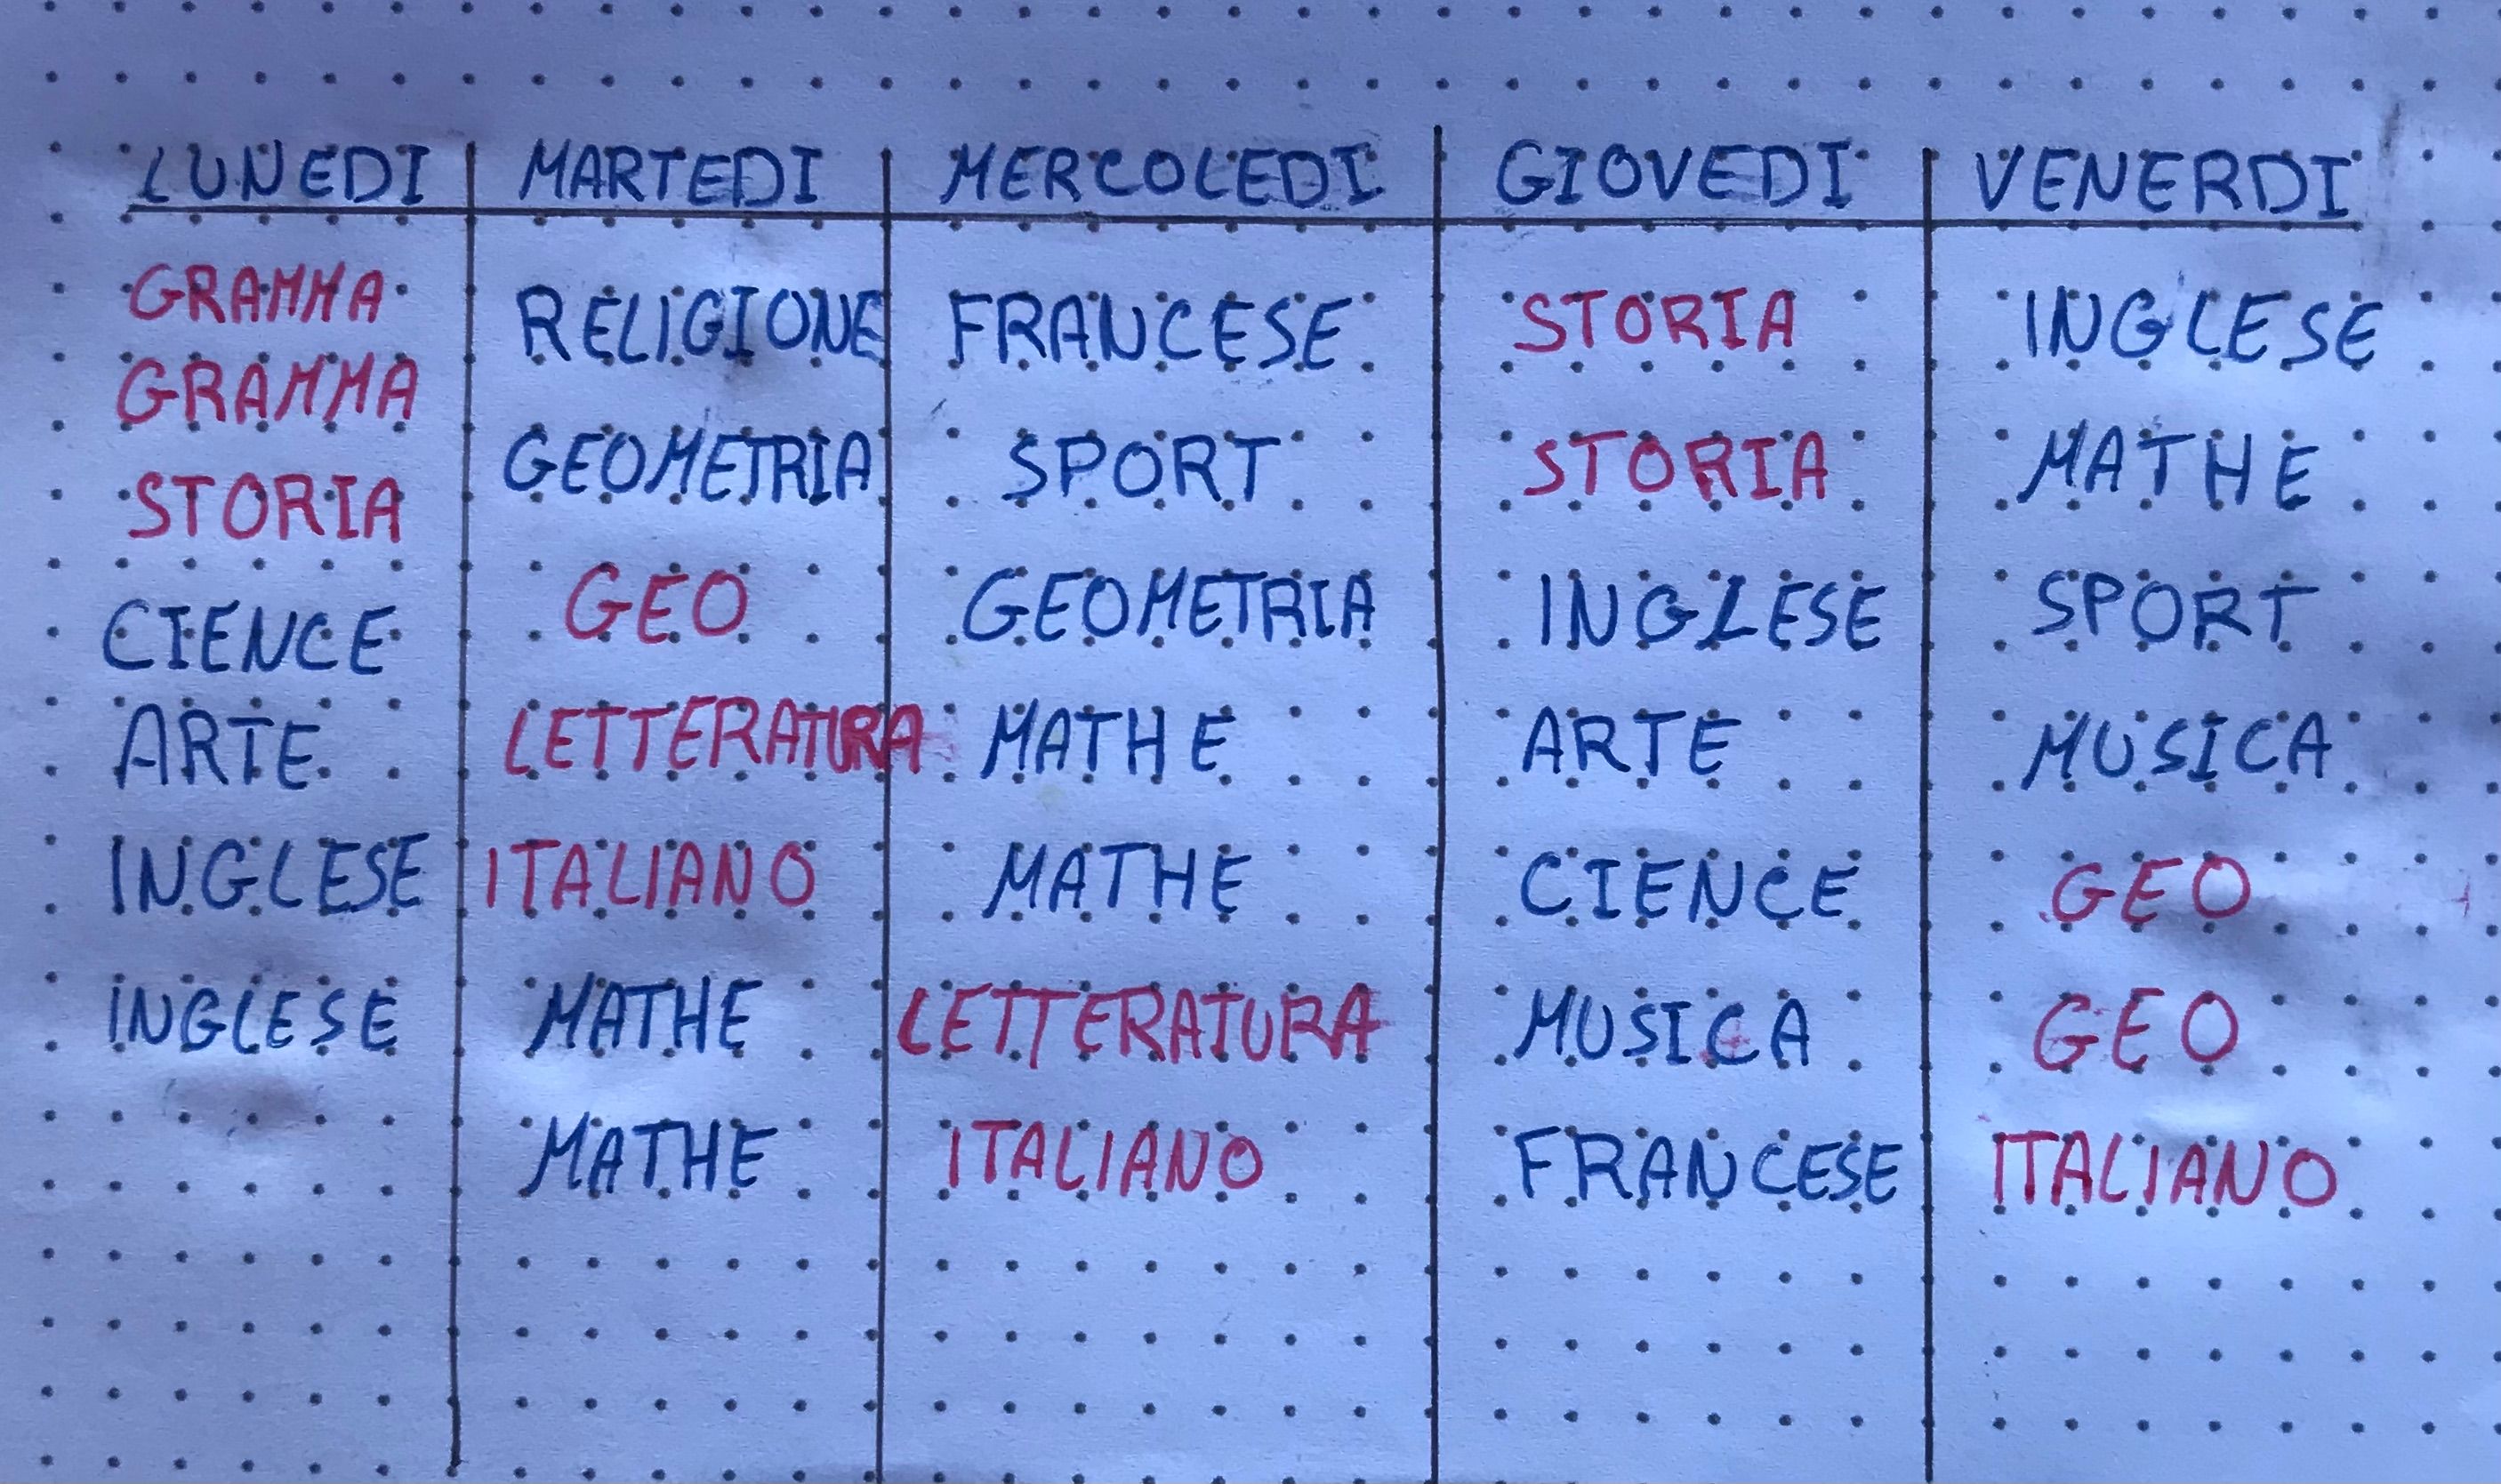 LUNEDI MARTEDI MERCOLEDI GIOVEDI VENERDI
GRAMMA RELIGIONE FRANCESE STORIA INGLESE
GRAMMA GEOMETRIA SPORT STORIA MATHE
STORIA GEO GEOMETRIA INGLESE SPORT
CIENCE LETTERATURA MATHE ARTE MUSICA
ARTE ITALIANO MATHE CIENCE GEO
INGLESE MATHE LETTERATURA MUSICA GEO
INGLESE MATHE ITALIANO FRANCESE ITALIANO